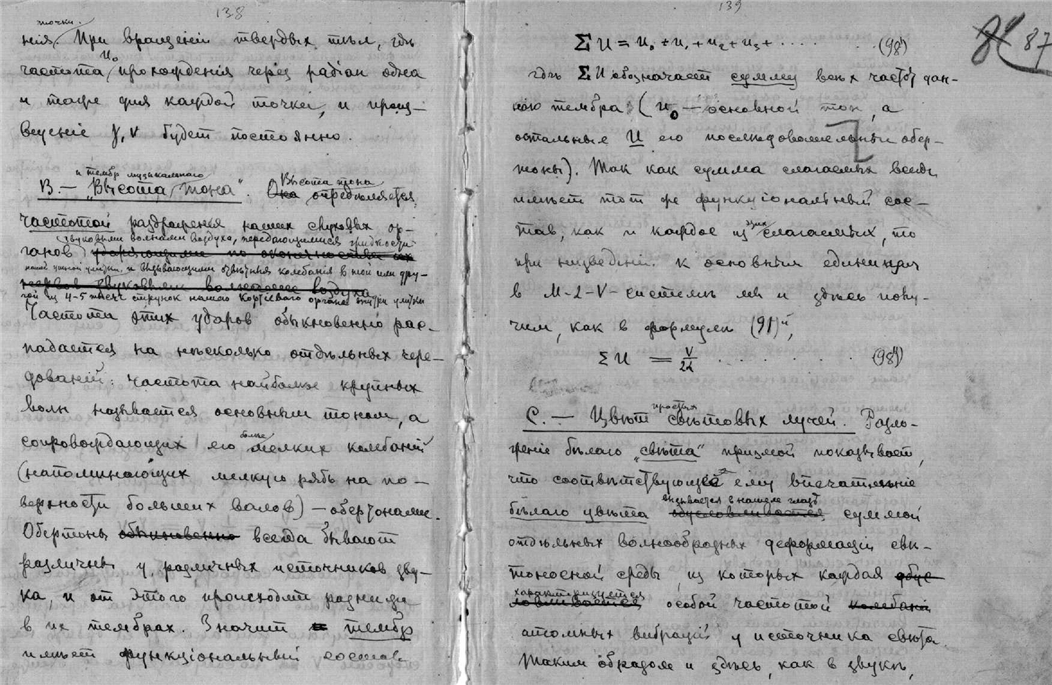 138
точки.
нія. При вращеніи твердыхъ тѣлъ, гдѣ
частота u₀ прохожденія черезъ радіан одна
и таже для каждой точки, и произ-
веденіе γ, v будетъ постоянно.
и тембр музыкальнаго
В. — "Высота тона". Высота тона
Она опредѣляется
частотой раздраженія нашихъ слуховыхъ ор-
гановъ звуковыми волнами воздуха, передающимися жидкости
нашей ушной улитки и вызывающими созвучныя колебанія в ней или дру-
гой из 4-5 тысяч струнок нашего Кортіева органа внутри улитки
Частота этихъ ударовъ обыкновенно рас-
падается на нѣсколько отдѣльныхъ чере-
дованій: частота наиболѣе крупныхъ
волн называется основнымъ тономъ, а
сопровождающихъ его болѣе мелкихъ колебаній
(напоминающихъ мелкую рябь на по-
верхности большихъ валовъ) — обертонами.
Обертоны обыкновенно всегда бываютъ
различны у различныхъ источниковъ зву-
ка, и от этого происходитъ разница
в их тембрах. Значит тембр
имѣетъ функціональный состав
139
87
Σ u = u₀ + u₁ + u₂ + u₃ + . . . . . . (98)
гдѣ Σ u обозначаетъ сумму всѣхъ частотъ дан-
наго тембра (u₀ — основной тон, а
остальные u его послѣдовательные обер-
тоны). Так какъ сумма слагаемыхъ всегда
имѣетъ тот же функціональный сос-
тав, какъ и каждое из этих слагаемыхъ, то
при низведеніи к основнымъ единицам
в M-L-V-системѣ мы и здѣсь полу-
чим, какъ в формулѣ (91)й
Σ u = v/2α . . . . . . (98)
простых
С. — Цвѣтъ свѣтовыхъ лучей. Разло-
женіе бѣлаго "свѣта" призмой показываетъ,
что соотвѣтствующее ему впечатлѣніе
бѣлаго цвѣта вызывается в нашем глазѣ
обусловливается суммой
отдѣльныхъ волнообразныхъ деформацій свѣ-
тоносной среды, из которыхъ каждая обус
характеризуется
ловливается особой частотой колебаній
атомныхъ вибрацій у источника свѣта.
Такимъ образомъ и здѣсь, какъ в звукѣ,